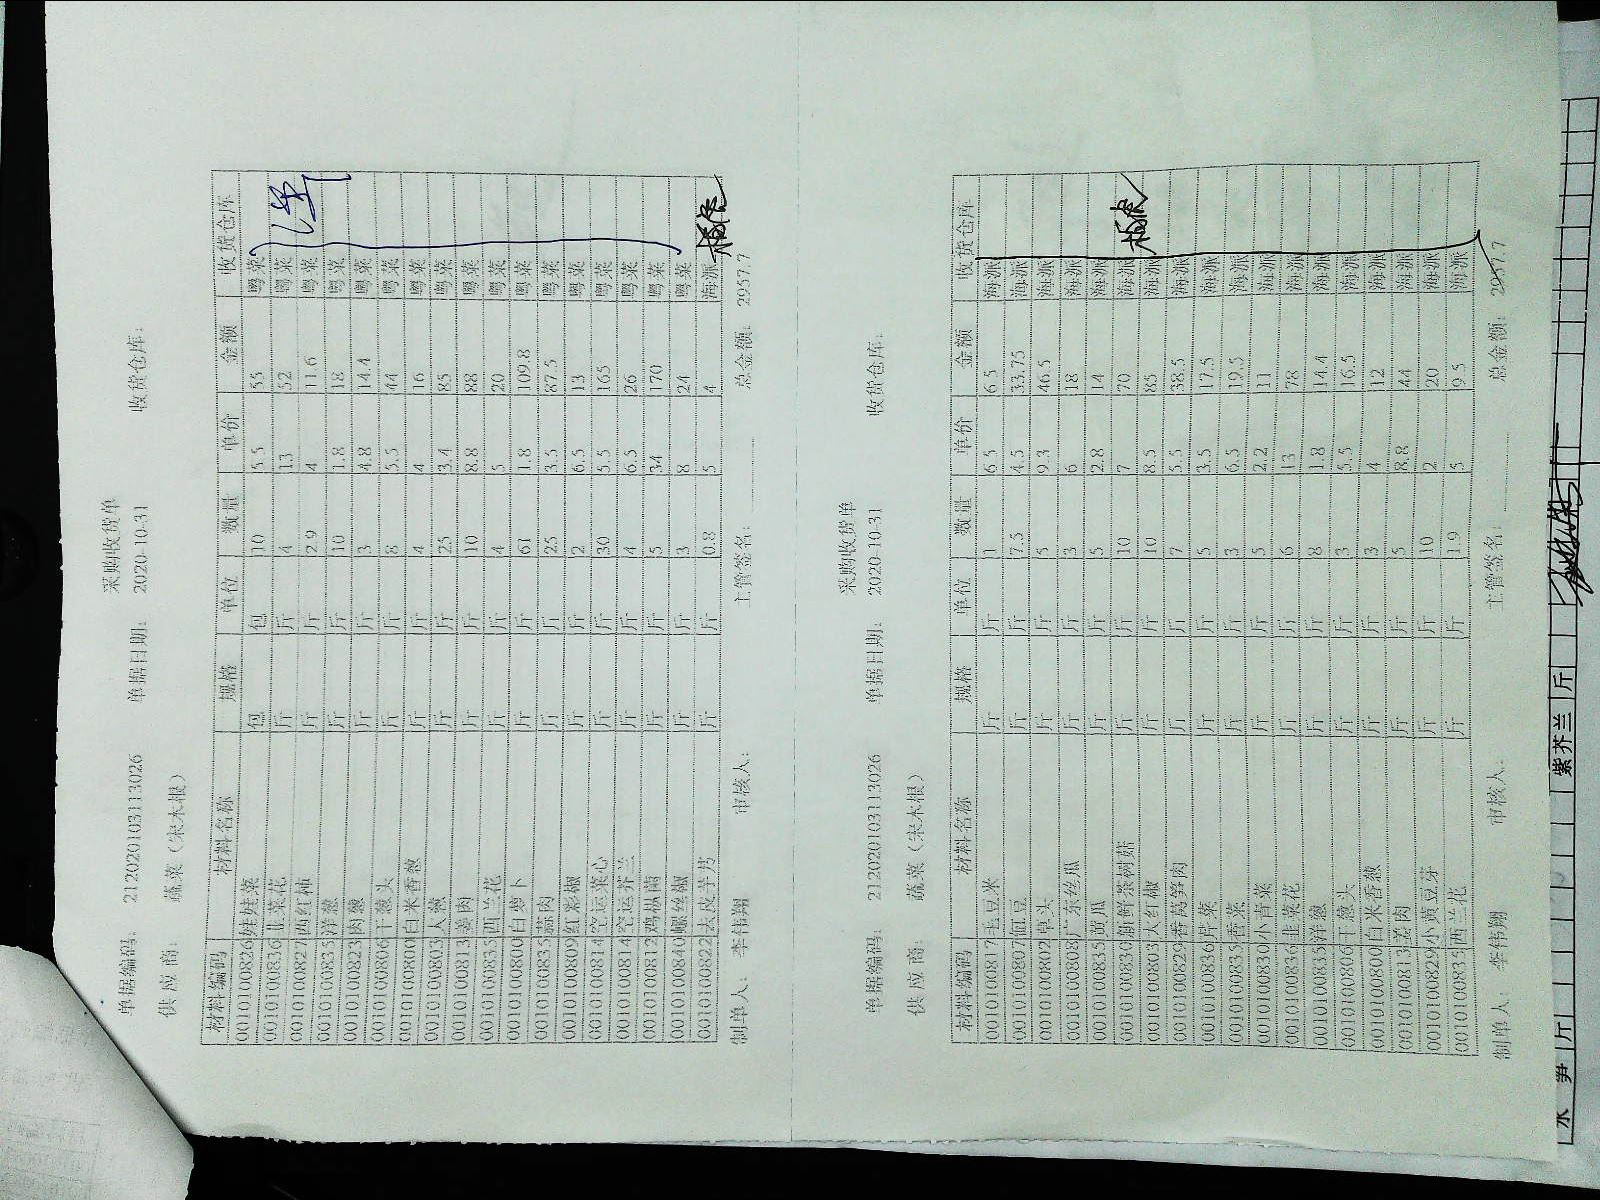 采购收货单
单据编码： 2120201031130​26 单据日期： 2020-10-31 收货仓库：
供 应 商： 蔬菜（宋木根）
材料编码 材料名称 规格 单位 数量 单价 金额 收货仓库
0010100826 娃娃菜 包 包 10 5.5 55 粤菜
0010100836 韭菜花 斤 斤 4 13 52 粤菜
0010100827 西红柿 斤 斤 2.9 4 11.6 粤菜
0010100835 洋葱 斤 斤 10 1.8 18 粤菜
0010100823 肉葱 斤 斤 3 4.8 14.4 粤菜
0010100806 干葱头 斤 斤 8 5.5 44 粤菜
0010100800 白米香葱 斤 斤 4 4 16 粤菜
0010100803 大葱 斤 斤 25 3.4 85 粤菜
0010100813 姜肉 斤 斤 10 8.8 88 粤菜
0010100835 西兰花 斤 斤 4 5 20 粤菜
0010100800 白萝卜 斤 斤 61 1.8 109.8 粤菜
0010100835 蒜肉 斤 斤 25 3.5 87.5 粤菜
0010100809 红彩椒 斤 斤 2 6.5 13 粤菜
0010100814 空运菜心 斤 斤 30 5.5 165 粤菜
0010100814 空运芥兰 斤 斤 4 6.5 26 粤菜
0010100812 鸡枞菌 斤 斤 5 34 170 粤菜
0010100840 螺丝椒 斤 斤 3 8 24 粤菜
0010100822 去皮芋艿 斤 斤 0.8 5 4 海派
制单人： 李伟翔 审核人： 主管签名： 总金额： 2957.7
采购收货单
单据编码： 212020103113026 单据日期： 2020-10-31 收货仓库：
供 应 商： 蔬菜（宋木根）
材料编码 材料名称 规格 单位 数量 单价 金额 收货仓库
0010100817 玉豆米 斤 斤 1 6.5 6.5 海派
0010100807 豇豆 斤 斤 7.5 4.5 33.75 海派
0010100802 草头 斤 斤 5 9.3 46.5 海派
0010100808 广东丝瓜 斤 斤 3 6 18 海派
0010100835 黄瓜 斤 斤 5 2.8 14 海派
0010100830 新鲜茶树菇 斤 斤 10 7 70 海派
0010100803 大红椒 斤 斤 10 8.5 85 海派
0010100829 香莴笋肉 斤 斤 7 5.5 38.5 海派
0010100836 芹菜 斤 斤 5 3.5 17.5 海派
0010100835 香菜 斤 斤 3 6.5 19.5 海派
0010100830 小青菜 斤 斤 5 2.2 11 海派
0010100836 韭菜花 斤 斤 6 13 78 海派
0010100835 洋葱 斤 斤 8 1.8 14.4 海派
0010100806 干葱头 斤 斤 3 5.5 16.5 海派
0010100800 白米香葱 斤 斤 3 4 12 海派
0010100813 姜肉 斤 斤 5 8.8 44 海派
0010100829 小黄豆芽 斤 斤 10 2 20 海派
0010100835 西兰花 斤 斤 1.9 5 9.5 海派
制单人： 李伟翔 审核人： 主管签名： 总金额： 2957.7
水 笋 斤 紫芥兰 斤